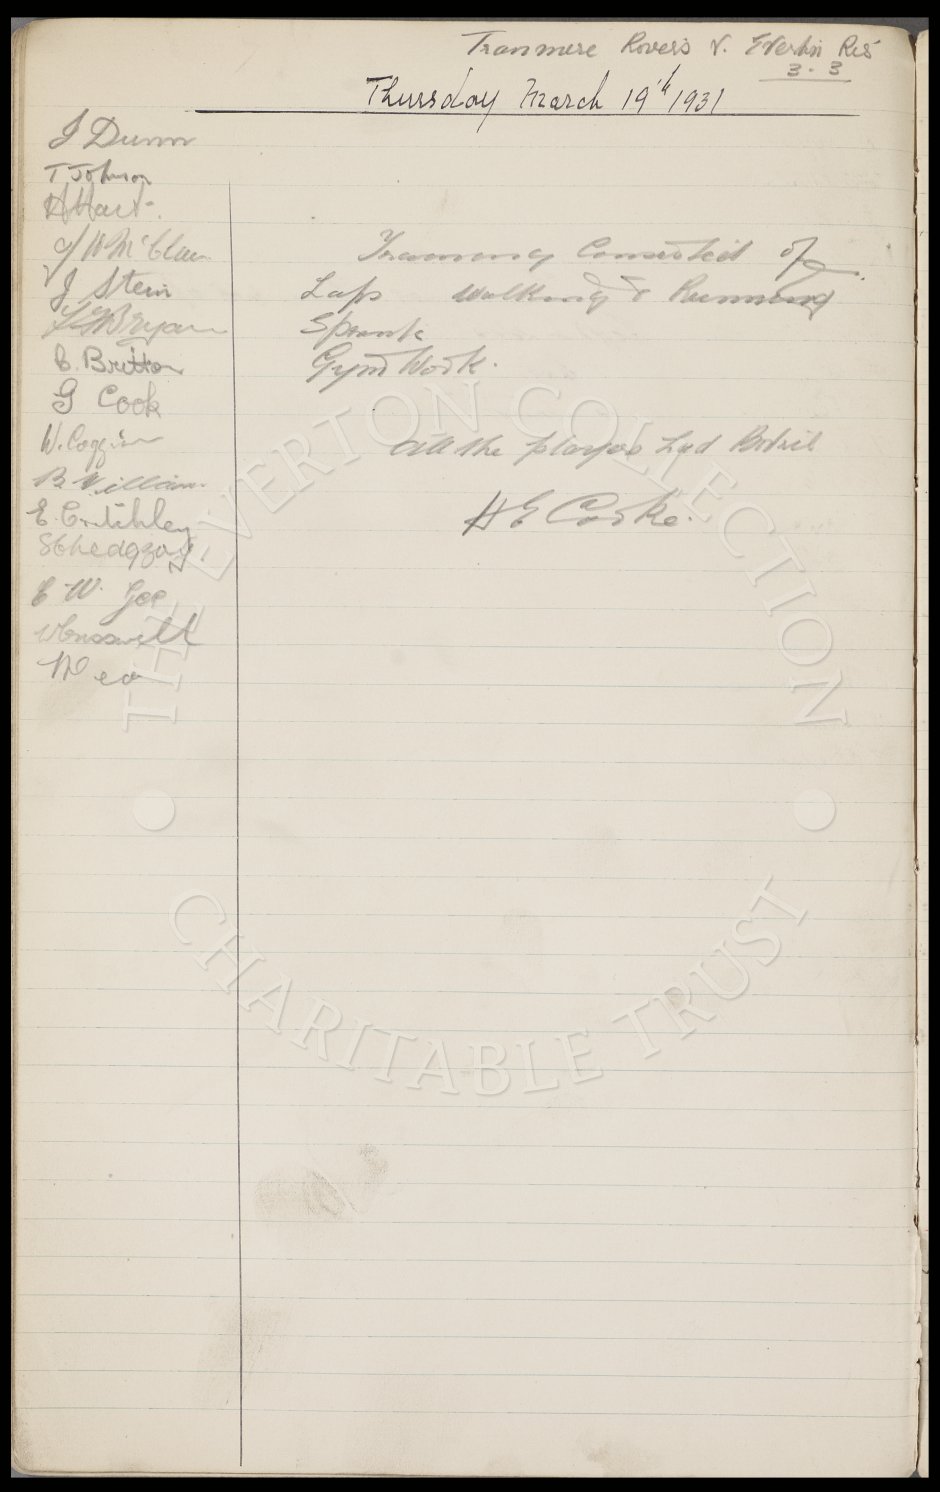 Tranmere Rovers v. Everton Res
3 - 3
Thursday March 19th 1931
J Dunn
T Johnson
H Hart.
J W McClure
J Stein
Bryan
C. Britton
G Cook
W. Coggins
B. Williams
E. Critchley
S Chedgzoy.
C W. Gee
W Cresswell
Training Consisted of
Laps Walking & Running
Sprints
Gym Work.
All the players had Bovril
H E Cooke.
THE EVERTON COLLECTION
CHARITABLE TRUST